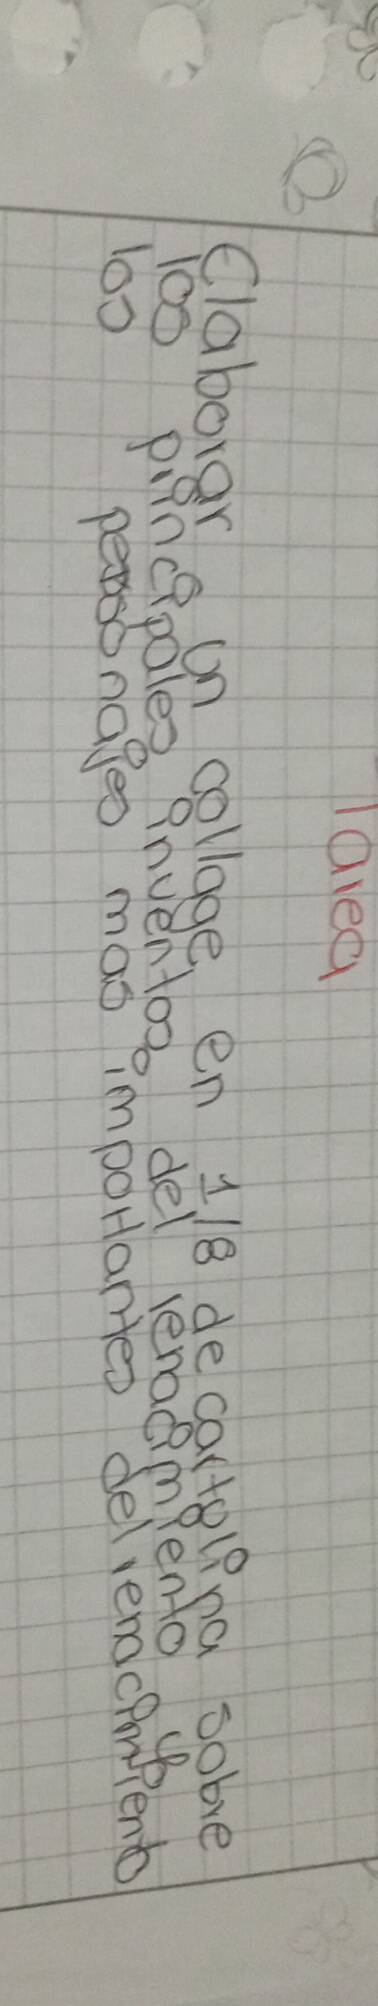 Tarea
Elaborar un collage en 1/8 de cartolina sobre
los principales inventos del renacimiento y
los personajes mas importantes del renacimiento